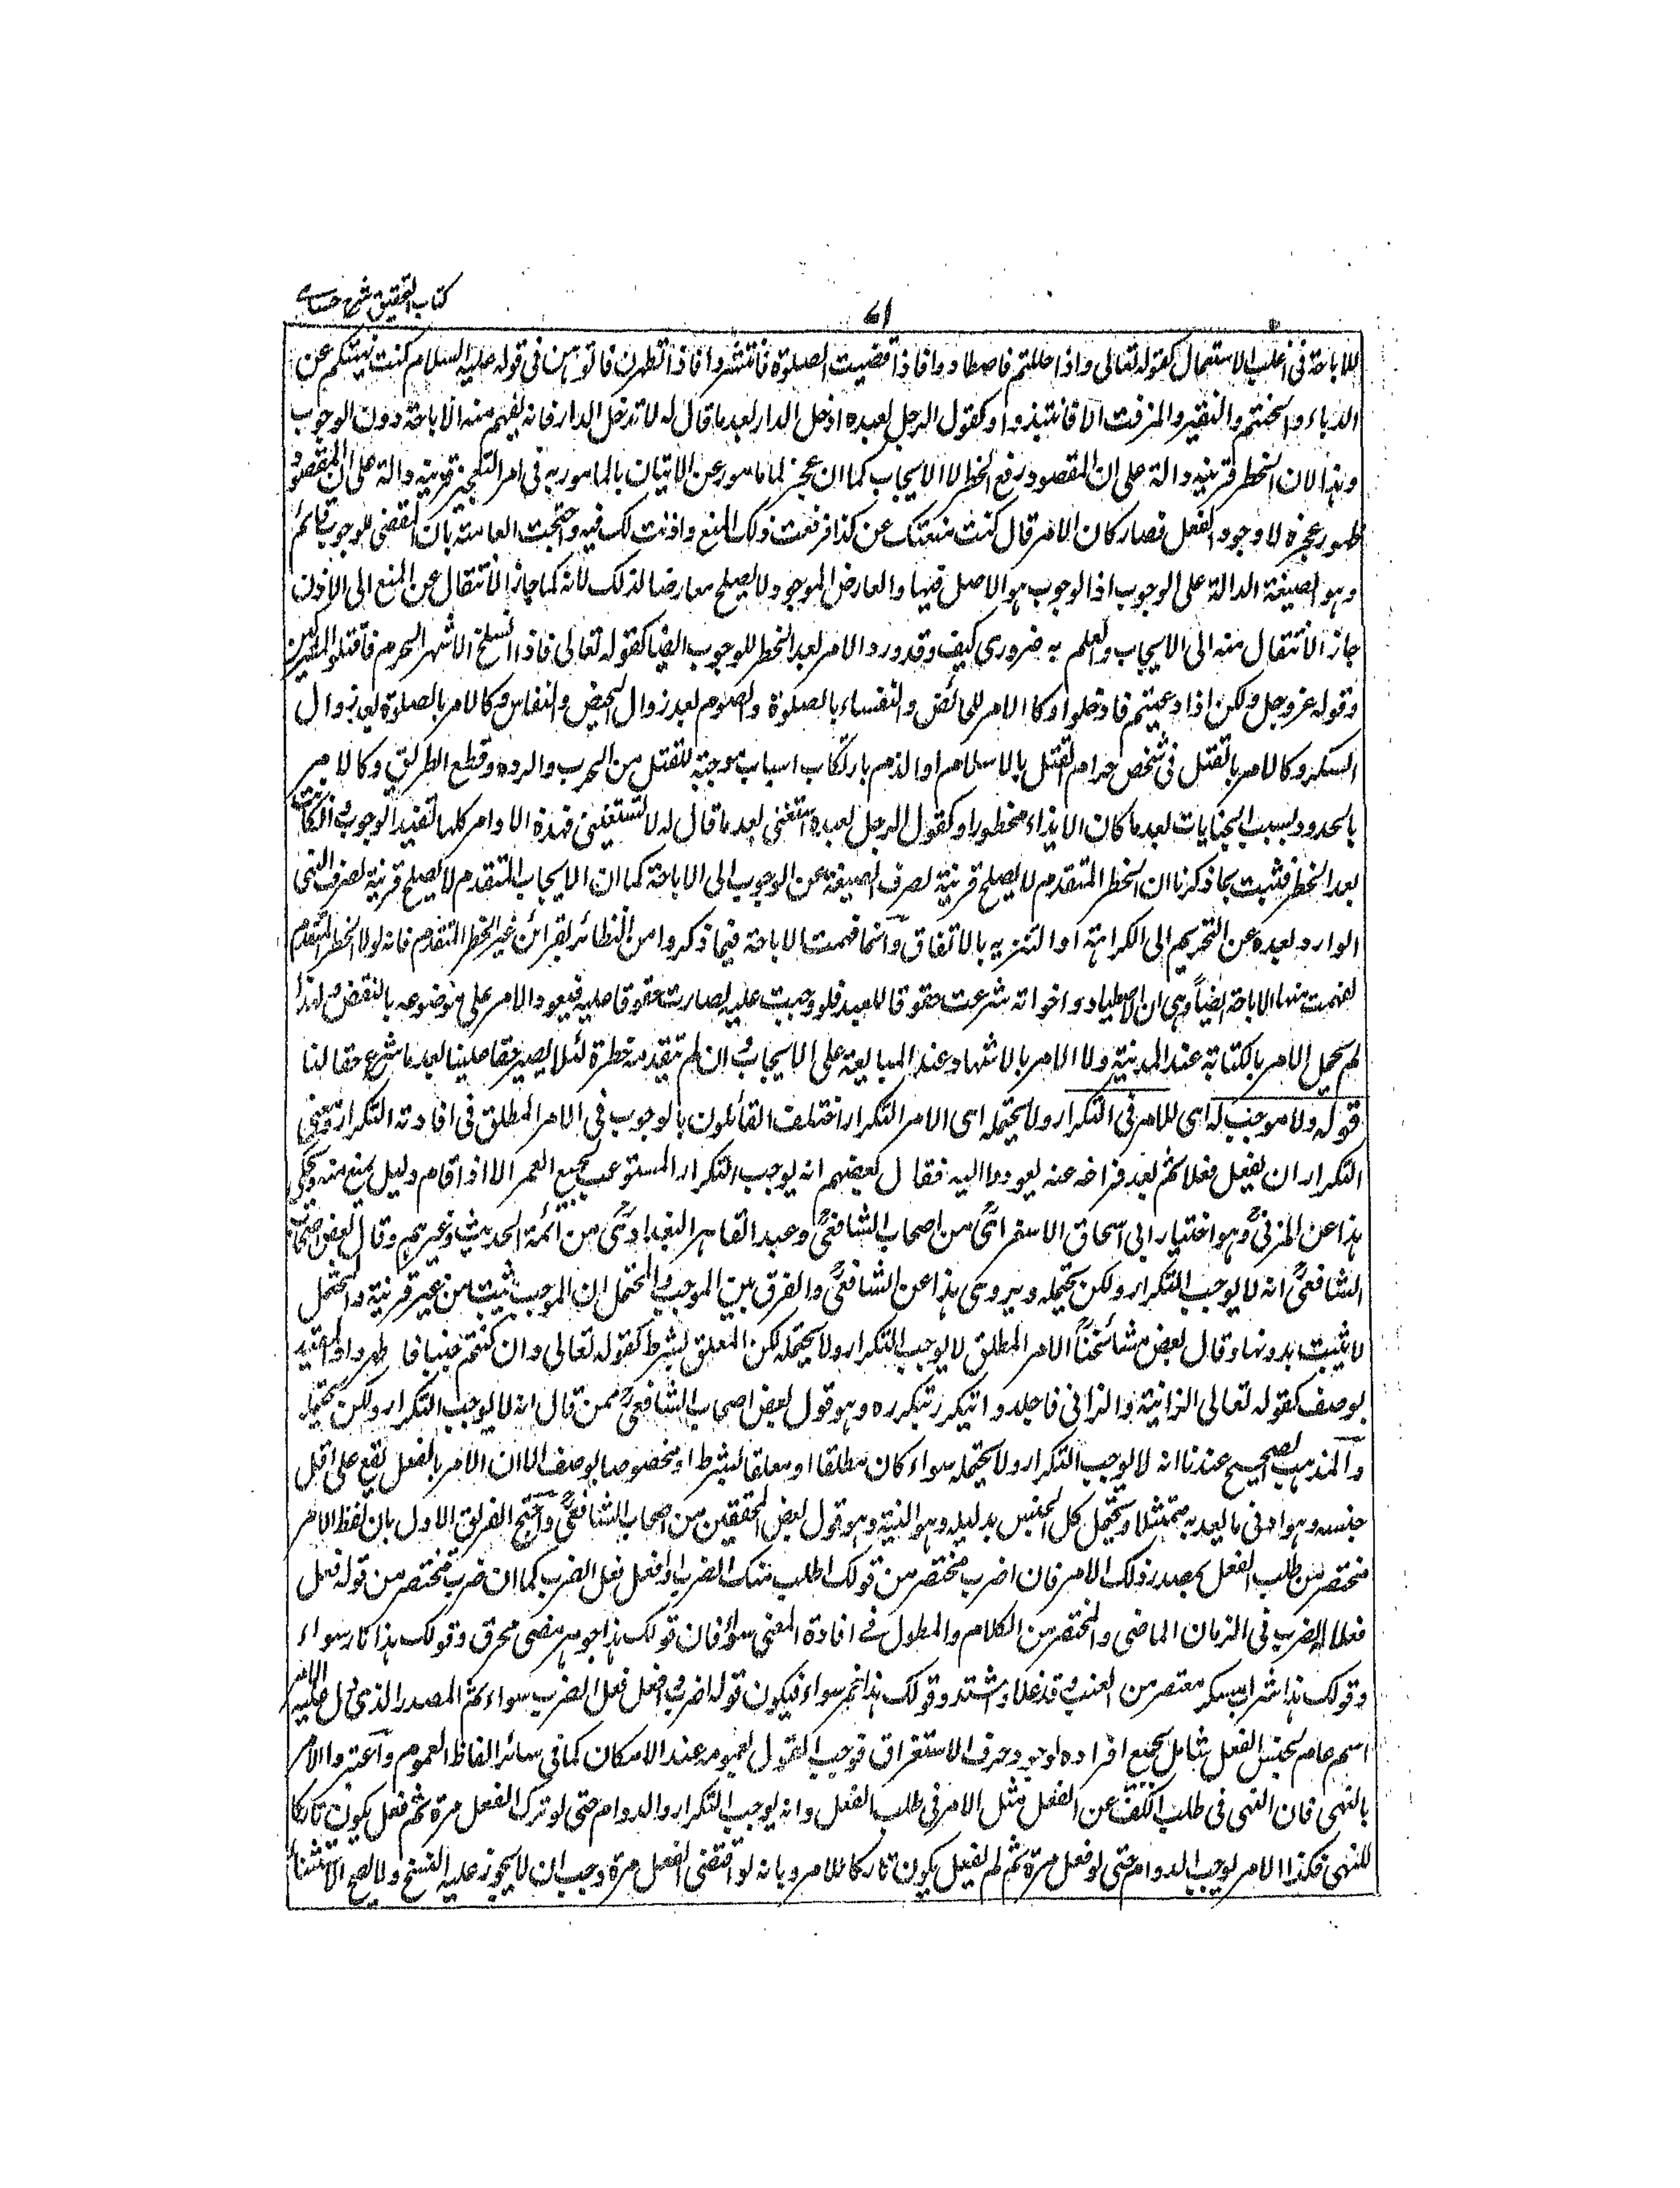 كتاب التحقيق شرح حسامى
٧١
للاباحة فى اغلب الاستعمال كقوله تعالى واذا حللتم فاصطادوا فاذا قضيت الصلوة فانتشروا فاذا تطهرن فاتوهن فى قوله عليه السلام كنت نهيتكم عن
الدباء والحنتم والنقير والمزفت الا فانتبذوا وكقول الرجل لعبده ادخل الدار بعد ما قال له لا تدخل الدار فانه يفهم منه الاباحة دون الوجوب
وهذا لان الحظر قرينة دالة على ان المقصود رفع الحظر لا الايجاب كما ان عجز المامور عن الاتيان بالمامور به فى امر التعجيز قرينة دالة على ان المقصود
ظهور عجزه لا وجود الفعل فصار كان الامر قال كنت منعتك عن كذا فرفعت ذلك المنع واذنت لك فيه واحتجت العامة بان المقتضى للوجوب قائم
وهو الصيغة الدالة على الوجوب اذ الوجوب هو الاصل فيها والعارض الموجود لا يصلح معارضا لذلك لانه كما جاز الانتقال عن المنع الى الاذن
جاز الانتقال منه الى الايجاب والعلم به ضرورى كيف وقد ورد الامر بعد الحظر للوجوب ايضا كقوله تعالى فاذا انسلخ الاشهر الحرم فاقتلوا المشركين
وقوله عز وجل ولكن اذا دعيتم فادخلوا وكا الامر للحائض والنفساء بالصلوة والصوم بعد زوال الحيض والنفاس وكالامر بالصلوة بعد زوال
السكر وكالامر بالقتل فى شخص حرام القتل بالاسلام او الذمم بارتكاب اسباب موجبة للقتل من الحرب والرده وقطع الطريق وكالامر
بالحدود بسبب الجنايات بعد ما كان الايذاء محظورا وكقول الرجل لعبده استغنى بعد ما قال له لا تستغنى فهذه الاوامر كلها تفيد الوجوب وان كانت
بعد الحظر فثبت بما ذكرنا ان الحظر المتقدم لا يصلح قرينة لصرف الصيغة عن الوجوب الى الاباحة كما ان الايجاب المتقدم لا يصلح قرينة لصرف النهى
الوارد بعده عن التحريم الى الكراهة او التنزيه بالاتفاق وانما فهمت الاباحة فيما ذكروا من النظائر بقرائن غير الحظر المتقدم فانه لولا الحظر المتقدم
لفهمت منها الاباحة ايضا وهى ان الاصطياد واخواته شرعت حقوقا للعبد فلو وجبت عليه لصارت حقوقا عليه فيعود الامر على موضوعه بالنقض ولهذا
لم يحمل الامر بالكتابة عند المداينة ولا الامر بالاشهاد عند المبايعة على الايجاب وان لم تتقدمه حظرة لئلا يصير حقا علينا بعد ما شرع حقا لنا
قوله ولا موجب له اى للامر فى التكرار ولا يحتمله اى الامر التكرار اختلف القائلون بالوجوب فى الامر المطلق فى افادته التكرار ومعنى
التكرار ان يفعل فعلا ثم بعد فراغه عنه يعود اليه فقال بعضهم انه يوجب التكرار المستوعب لجميع العمر الا اذا قام دليل يمنع منه ويحكى
هذا عن المزنى وهو اختيار ابى اسحاق الاسفرائنى من اصحاب الشافعى وعبد القاهر البغدادى من ائمة الحديث وغيرهم وقال بعض اصحاب
الشافعى انه لا يوجب التكرار ولكن يحتمله ويروى هذا عن الشافعى والفرق بين الموجب والمحتمل ان الموجب يثبت من غير قرينة والمحتمل
لا يثبت بدونها وقال بعض مشائخنا الامر المطلق لا يوجب التكرار ولا يحتمله لكن المعلق بشرط كقوله تعالى وان كنتم جنبا فاطهروا والمقيد
بوصف كقوله تعالى الزانية والزانى فاجلدوا يتكرر بتكرره وهو قول بعض اصحاب الشافعى ممن قال انه لا يوجب التكرار ولكن يحتمله
والمذهب الصحيح عندنا انه لا يوجب التكرار ولا يحتمله سواء كان مطلقا او معلقا بشرط او مخصوصا بوصف الا ان الامر بالفعل يقع على اقل
جنسه وهو ادنى ما يعد به ممتثلا ويحتمل كل الجنس بدليله وهو النية وهو قول بعض المحققين من اصحاب الشافعى واحتج الفريق الاول بان لفظ الامر
مختصر من طلب الفعل بمصدر ذلك الامر فان اضرب مختصر من قولك اطلب منك الضرب او افعل فعل الضرب كما ان ضرب مختصر من قوله فعل
فعل الضرب فى الزمان الماضى والمختصر من الكلام والمطول فى افادة المعنى سواء فان قولك هذا جوهر مضئ محرق وقولك هذا نار سواء
وقولك هذا شراب مسكر معتصر من العنب وقد غلا واشتد وقولك هذا خمر سواء فيكون قوله اضرب وافعل فعل الضرب سواء ثم المصدر الذى دل عليه الامر
اسم عام لجنس الفعل شامل لجميع افراده لوجود حرف الاستغراق فوجب القول بعمومه عند الامكان كما فى سائر الفاظ العموم واعتبروا الامر
بالنهى فان النهى فى طلب الكف عن الفعل مثل الامر فى طلب الفعل وانه يوجب التكرار والدوام حتى لو ترك الفعل مرة ثم فعل يكون تاركا
للنهى فكذا الامر يوجب الدوام حتى لو فعل مرة ثم لم يفعل يكون تاركا للامر وبانه لو اقتضى الفعل مرة وجب ان لا يجوز عليه النسخ ولا يصح الاستثناء